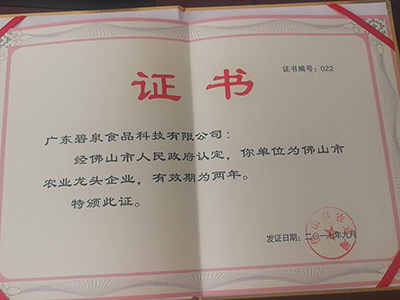 证书编号：022
证书
广东碧泉食品科技有限公司：
经佛山市人民政府认定，你单位为佛山市
农业龙头企业，有效期为两年。
特颁此证。
发证日期：二〇一七年九月